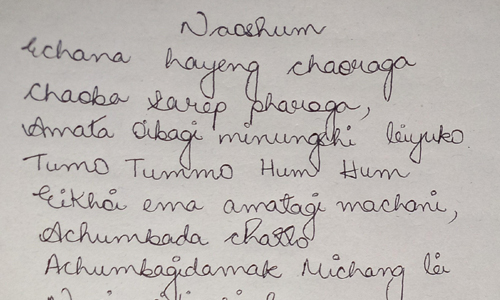 Naoshum
Echana hayeng chaoraga
Chaoba sarep pharaga,
Amata oibagi minungshi leiyuko
Tumo Tummo Hum Hum
Eikhoi ema amatagi machani,
Achumbada chatlo
Achumbagidamak Michang lei